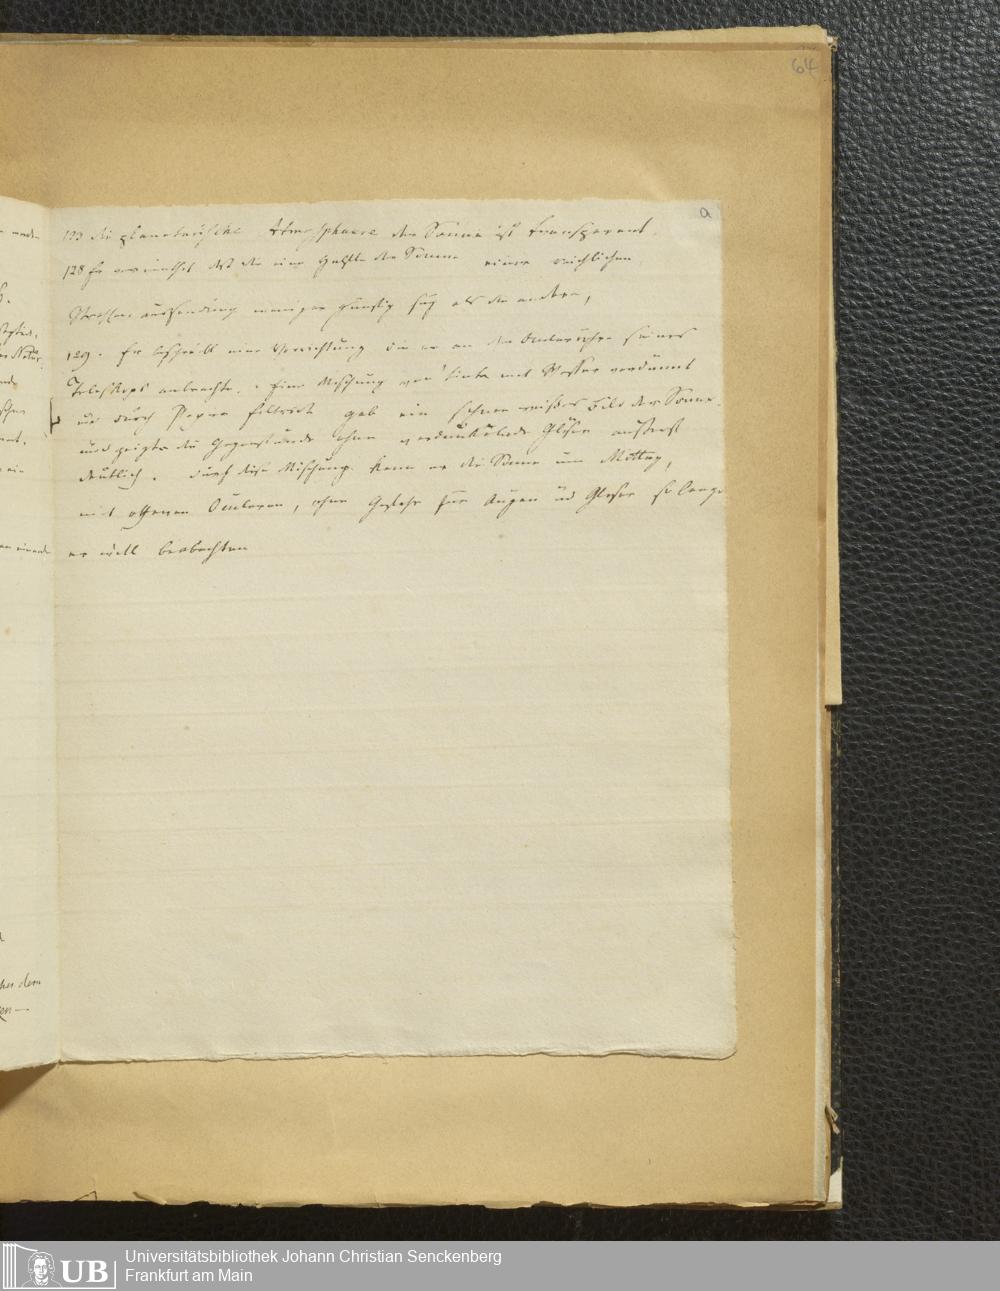 64
a
123 die planetarische Atmosphaere der Sonne ist transparent.
128 Er vermuthet daß die eine Haelfte der Sonne einer reichlichen
Strahlen aussendung weniger günstig sey als die andere,
129. Er beschreibt eine Vorrichtung die er an den Ocularröhren seines
Teleskops anbrachte. Eine Mischung von Tinte mit Wasser verdünnt
und durch Papier filtrirt gab ein schnee weißes Bild der Sonne
und zeigte die Gegenstände ohne verdunkelnde Gläser äußerst
deutlich. durch diese Mischung kann er die Sonne im Mittag,
mit offenen Ocularen, ohne Gefahr für Augen und Gläser so lange
er will beobachten
her dem
Universitätsbibliothek Johann Christian Senckenberg
Frankfurt am Main
UB